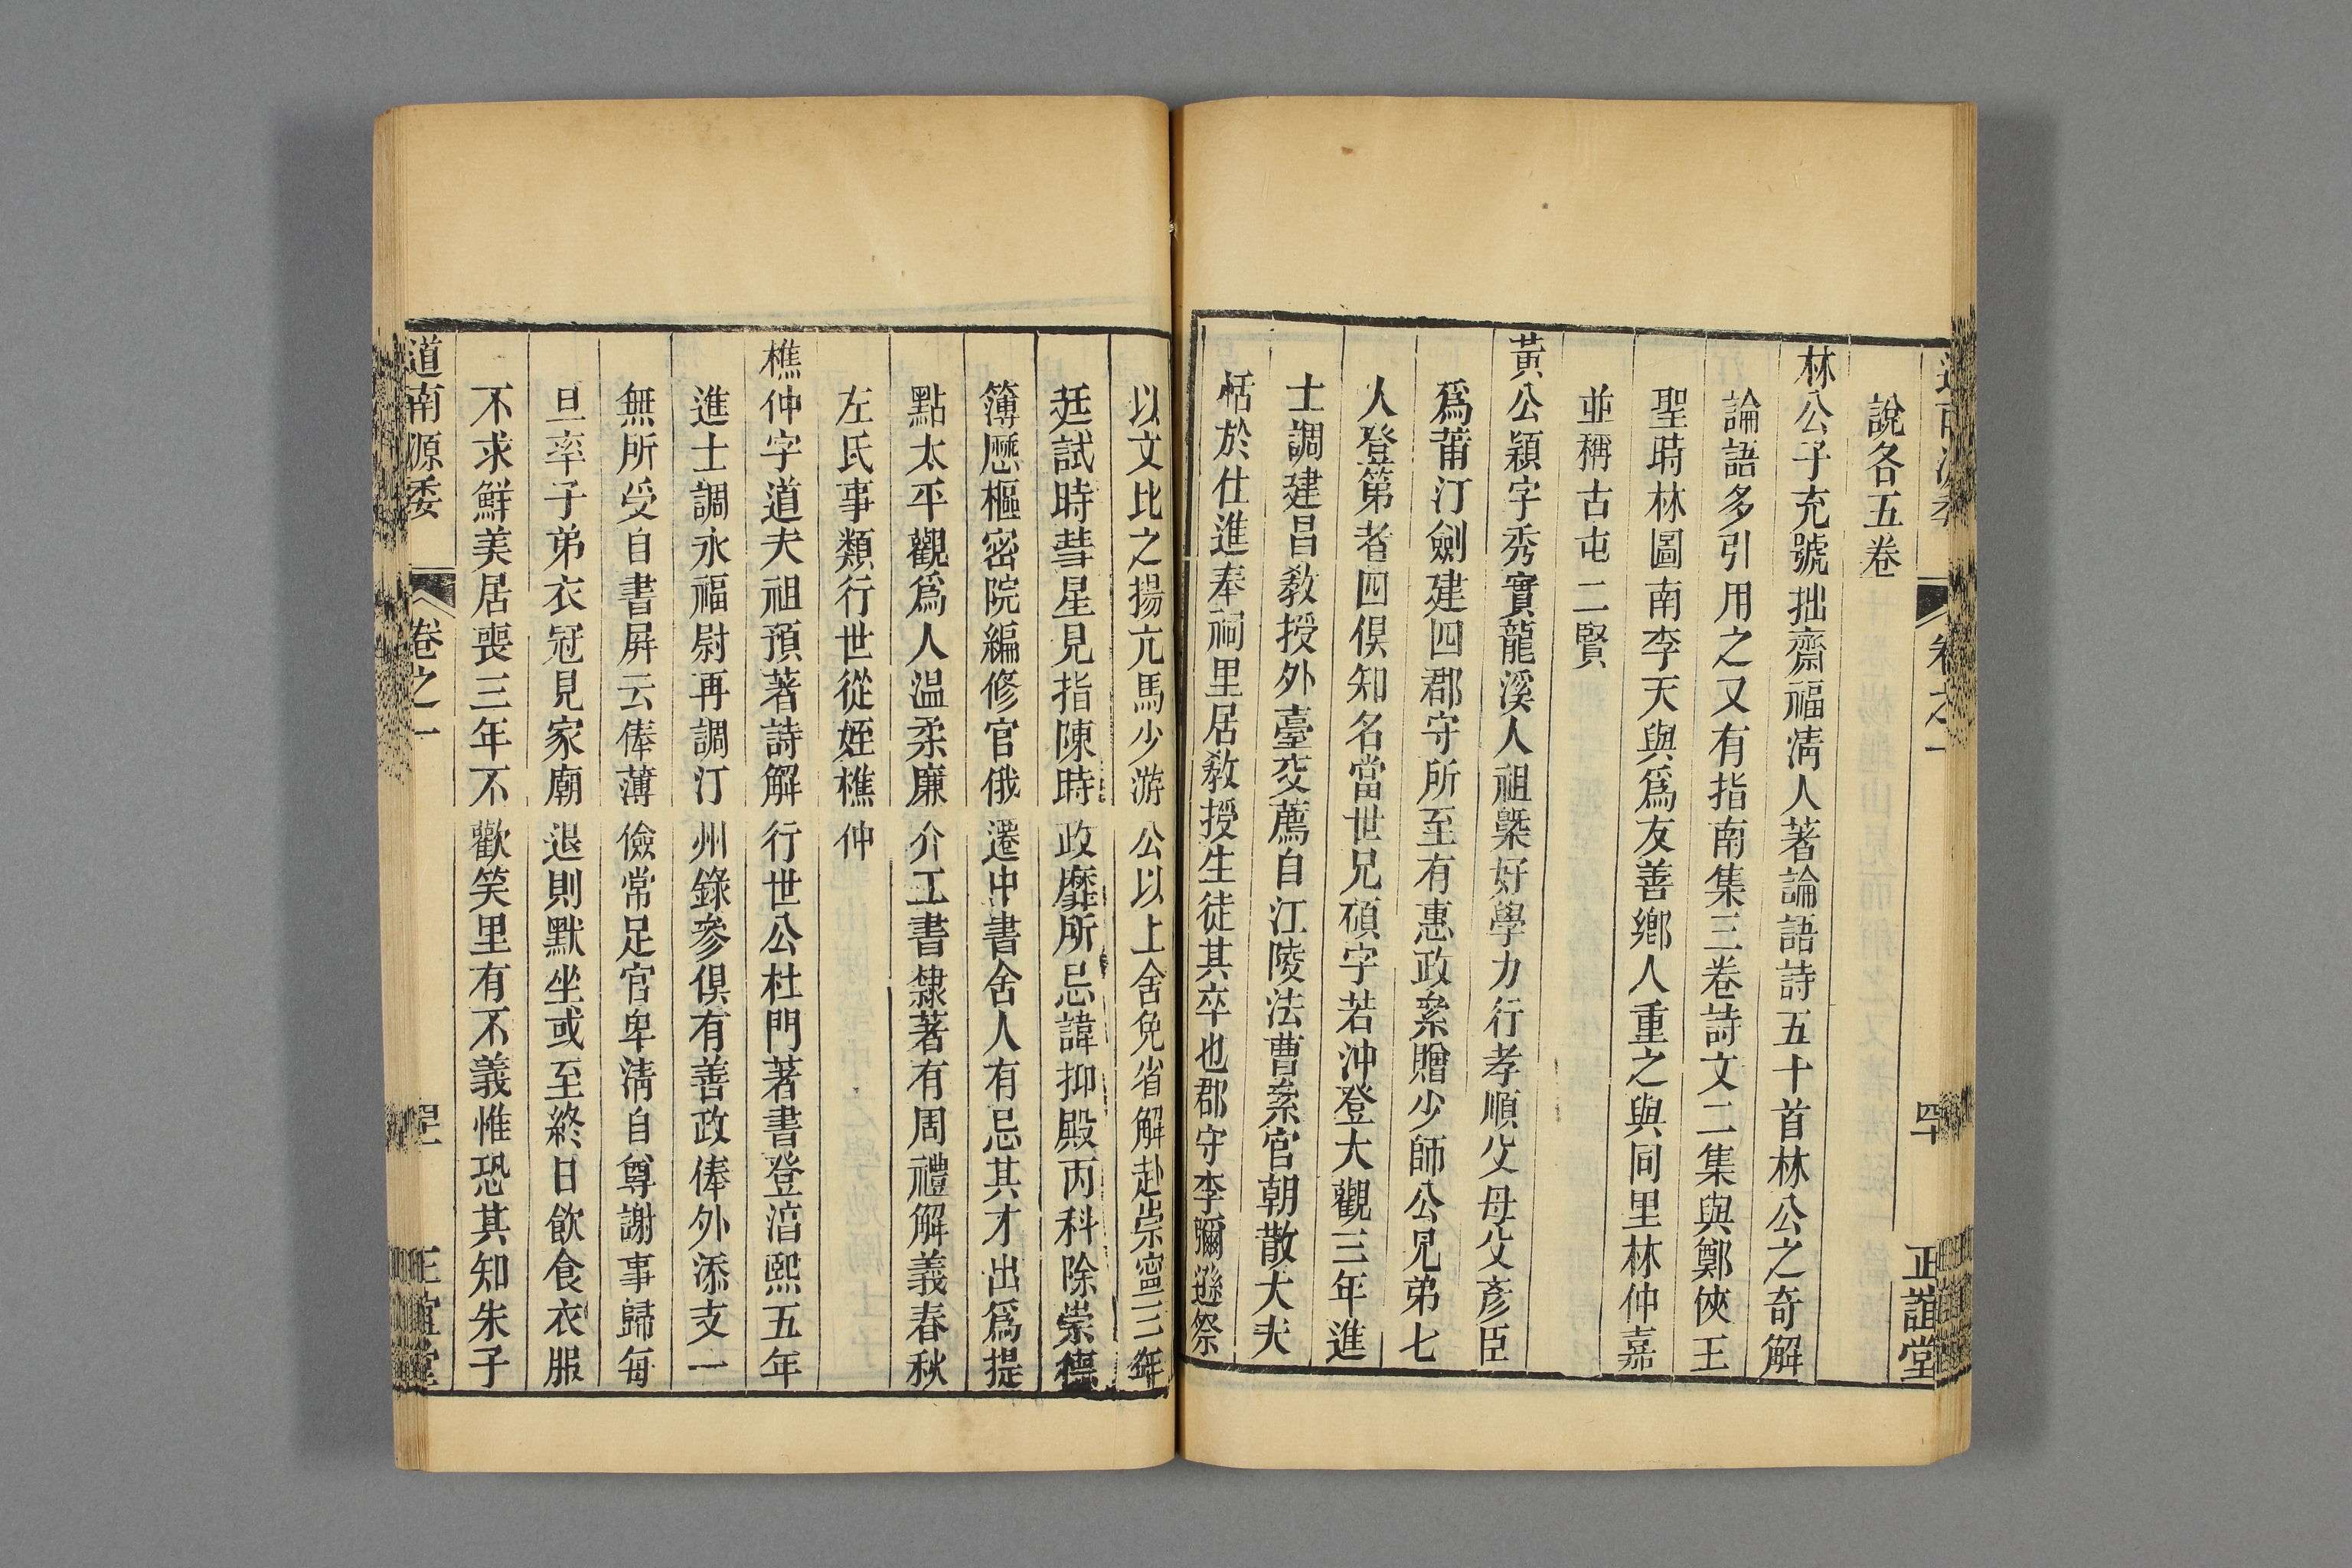 說各五卷
林公子充號拙齋福淸人著論語詩五十首林公之奇解
論語多引用之又有指南集三卷詩文二集與鄭俠王
聖時林圖南李天與爲友善鄉人重之與同里林仲嘉
並稱古屯二賢
黃公穎字秀實龍溪人祖槩好學力行孝順父母父彥臣
爲莆汀劍建四郡守所至有惠政累贈少師公兄弟七
人登第者四俱知名當世兄碩字若沖登大觀三年進
士調建昌敎授外臺交薦自江陵法曹累官朝散大夫
恬於仕進奉祠里居敎授生徒其卒也郡守李彌遜祭
以文比之揚亢馬少游公以上舍免省解赴崇寧三年
廷試時彗星見指陳時政靡所忌諱抑殿丙科除崇德
簿歷樞密院編修官俄遷中書舍人有忌其才出爲提
點太平觀爲人温柔廉介工書隸著有周禮解義春秋
左氏事類行世從姪樵仲
樵仲字道夫祖預著詩解行世公杜門著書登淳熙五年
進士調永福尉再調汀州錄參俱有善政俸外添支一
無所受自書屏云俸薄儉常足官卑淸自尊謝事歸每
旦率子弟衣冠見家廟退則默坐或至終日飲食衣服
不求鮮美居喪三年不歡笑里有不義惟恐其知朱子
道南源委
卷之一
正誼堂